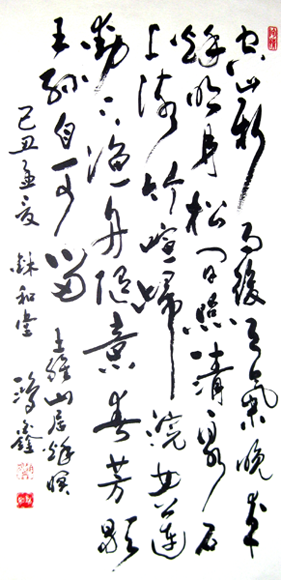 空山新雨後天氣晚來
秋明月松間照清泉石
上流竹喧歸浣女蓮
動下漁舟隨意春芳歇
王孫自可留
王維山居秋暝
己丑孟夏 和堂 鴻鑫